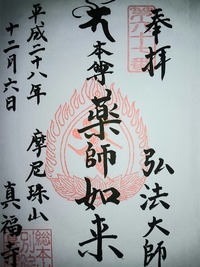 奉拝
弘法大師
本尊
薬師如来
摩尼珠山
真福寺
平成二十八年
十二月六日